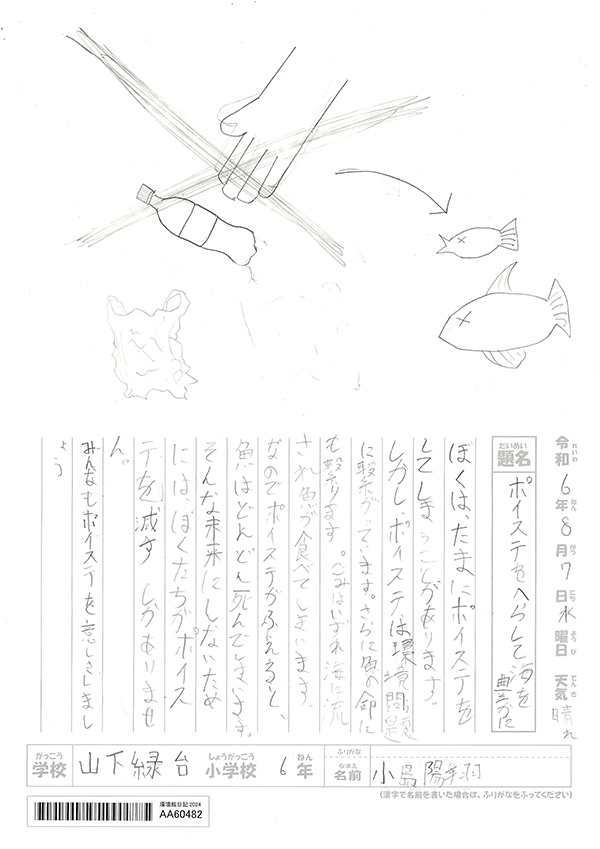 令和6年8月7日水曜日 天気晴れ
れいわ ねん がつ にち ようび てんき
だいめい
題名 ポイステをへらして海を豊かに
ぼくは、たまにポイステを
してしまうことがあります。
しかし、ポイステは環境問題
に繋がっています。さらに魚の命に
も繋がります。ごみはいずれ海に流
され魚が食べてしまいます。
なのでポイステがふえると、
魚はどんどん死んでしまいます。
そんな未来にしないため
には、ぼくたちがポイス
テを減すしかありませ
ん。
みんなもポイステを意しきしまし
ょう
がっこう しょうがっこう ねん ふりがな なまえ
学校 山下緑台小学校 6年 名前 小島陽
(漢字で名前を書いた場合は、ふりがなをふってください)
環境絵日記 2024
AA60482